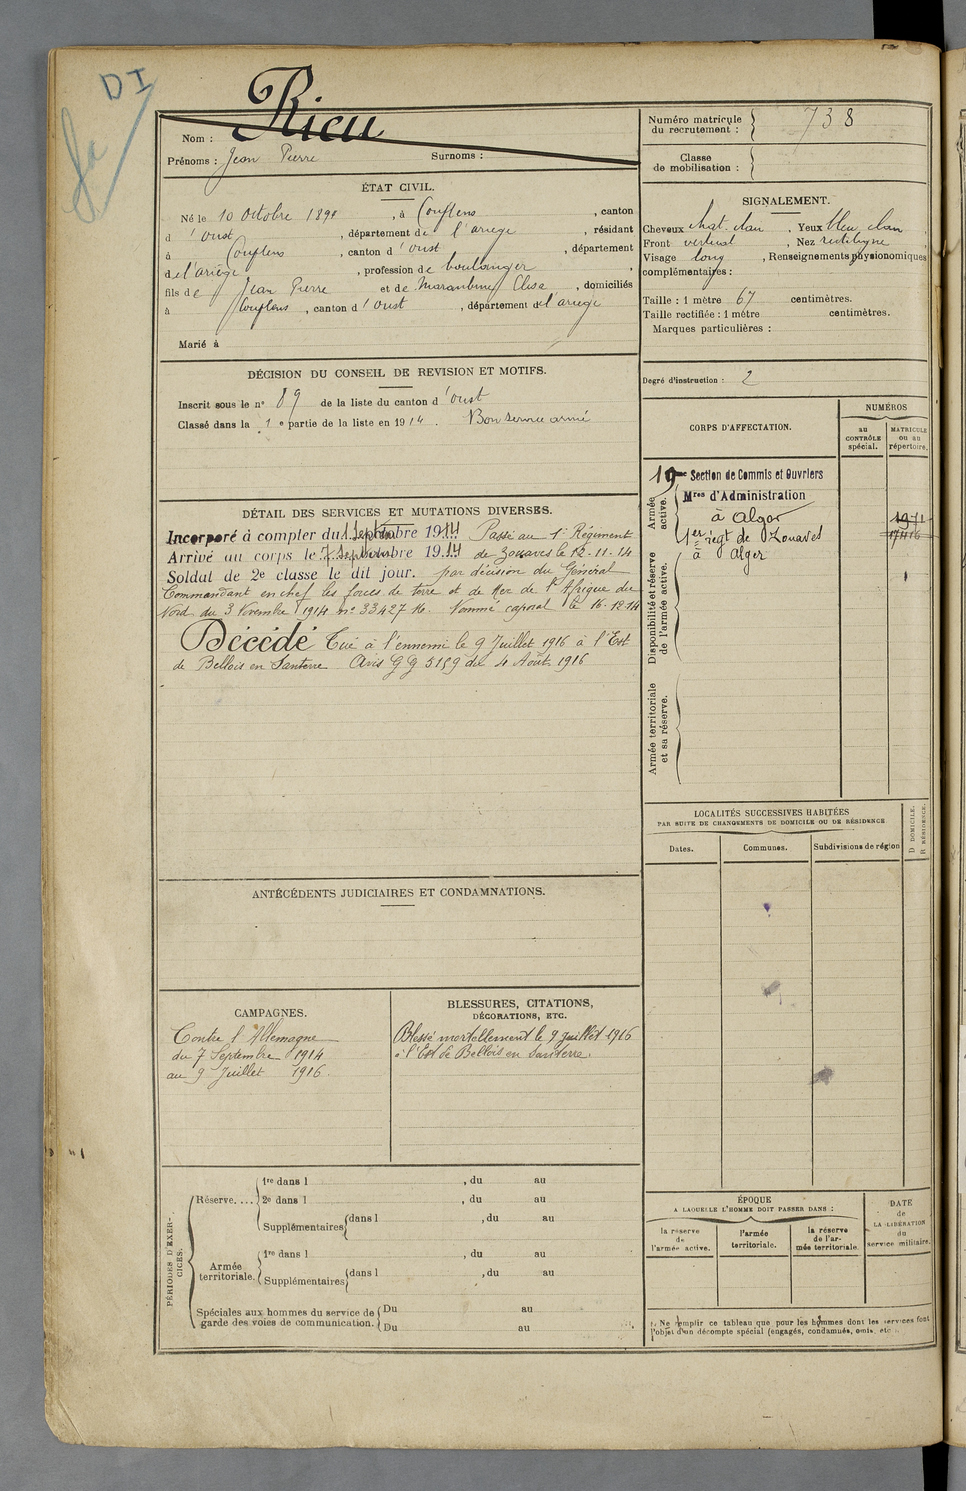 DI
Nom : Rieu
Prénoms : Jean Pierre Surnoms :
Numéro matricule du recrutement : 738
Classe de mobilisation :
ÉTAT CIVIL.
Né le 10 Octobre 189 , à Couflens , canton
d'Oust , département de l'ariège , résidant
à Couflens , canton d'Oust , département
de l'ariège , profession de boulanger
fils de Jean Pierre et de Elise , domiciliés
à Couflens , canton d'Oust , département de l'ariège
Marié à
SIGNALEMENT.
Cheveux chat. clair . Yeux bleu clair
Front vertical , Nez rectiligne
Visage long , Renseignements physionomiques
complémentaires :
Taille : 1 mètre 67 centimètres.
Taille rectifiée : 1 mètre centimètres.
Marques particulières :
DÉCISION DU CONSEIL DE REVISION ET MOTIFS.
Inscrit sous le n° 89 de la liste du canton d'Oust
Classé dans la 1e partie de la liste en 1914 . Bon service armé
Degré d'instruction : 2
DÉTAIL DES SERVICES ET MUTATIONS DIVERSES.
Incorporé à compter du 1 Septembre 1914 Passé au 1er Régiment
Arrivé au corps le 7 Septembre 1914 de Zouaves le 12-11-14
Soldat de 2e classe le dit jour. par décision du Général
Commandant en chef les forces de terre et de Mer de l'Afrique du
Nord du 3 Novembre 1914 n° 33427 K. Nommé caporal le 16-12-14
Décédé Tué à l'ennemi le 9 Juillet 1916 à l'Est
de Bellois en Santerre Avis G G 5159 du 4 Août 1916
CORPS D'AFFECTATION.
NUMÉROS
au CONTRÔLE spécial.
MATRICULE ou au répertoire.
Armée active.
19me Section de Commis et Ouvriers
Mres d'Administration
à Alger
1971
1er régt de Zouaves
à Alger
17416
Disponibilité et réserve de l'armée active.
Armée territoriale et sa réserve.
LOCALITÉS SUCCESSIVES HABITÉES
PAR SUITE DE CHANGEMENTS DE DOMICILE OU DE RÉSIDENCE
Dates. Communes. Subdivisions de région
D DOMICILE.
R RÉSIDENCE.
ANTÉCÉDENTS JUDICIAIRES ET CONDAMNATIONS.
CAMPAGNES.
Contre l'Allemagne
du 7 Septembre 1914
au 9 Juillet 1916.
BLESSURES, CITATIONS,
DÉCORATIONS, ETC.
Blessé mortellement le 9 juillet 1916
à l'Est de Bellois en Santerre.
PÉRIODES D'EXERCICES.
Réserve....
1re dans l , du au
2e dans l , du au
Supplémentaires dans l , du au
Armée territoriale.
1re dans l , du au
Supplémentaires dans l , du au
Spéciales aux hommes du service de garde des voies de communication.
Du au
Du au
ÉPOQUE
A LAQUELLE L'HOMME DOIT PASSER DANS :
la réserve de l'armée active.
l'armée territoriale.
la réserve de l'armée territoriale.
DATE de LA LIBÉRATION du service militaire.
Ne remplir ce tableau que pour les hommes dont les services font
l'objet d'un décompte spécial (engagés, condamnés, omis, etc.).